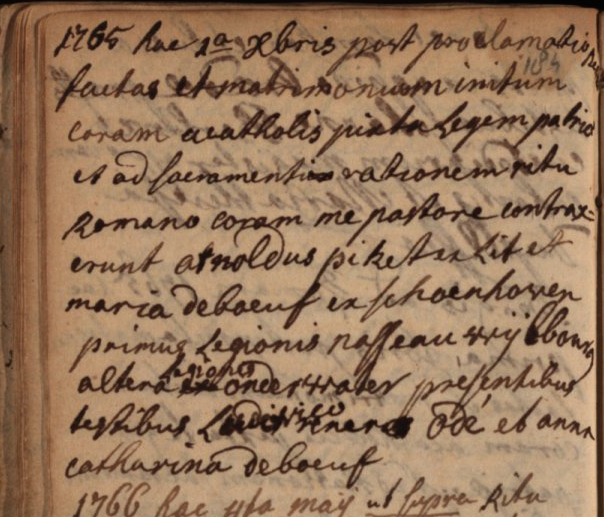 1765 hac 1a Xbris post proclamatio
factas et matrimonium initum
coram acatholis juxta Legem patriæ
et ad sacramenti rationem ritu
Romano coram me pastore contrax=
erunt arnoldus piket ex Lit et
maria deboeuf ex schoenhoven
primus Legionis nasseau wijlbourg
altera legionis onderwater presentibus
testibus Ludovico odé et anna
catharina deboeuf
1766 hac 4ta maij ut supra Ritu